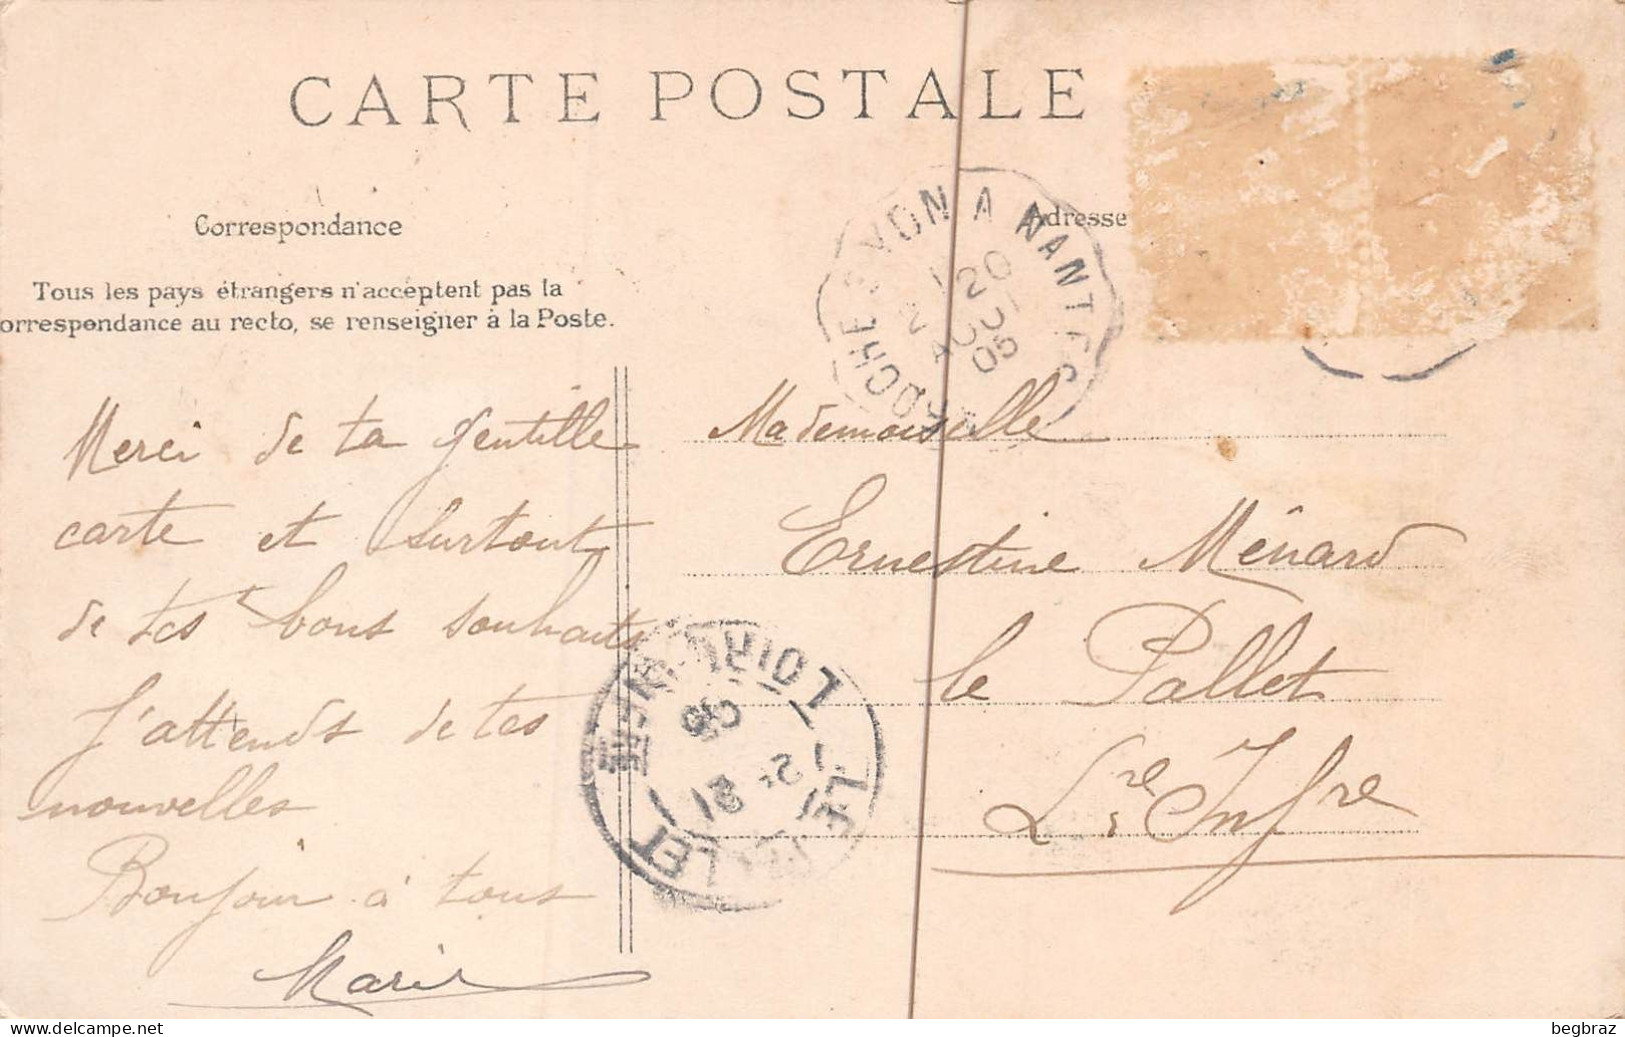 CARTE POSTALE
Correspondance
Adresse
Tous les pays étrangers n'acceptent pas la
orrespondance au recto, se renseigner à la Poste.
ROCHE S YON A NANTES
20
AOUT
05
Merci de ta gentille
carte et surtout
de tes bons souhaits
J'attends de tes
nouvelles
Bonjour à tous
Marie
Mademoiselle
Ernestine Ménard
le Pallet
Lre Infre
LE PALLET
21
05
delcampe.net
begbraz